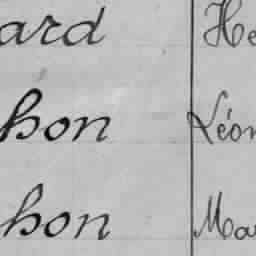 ard He
hon Léon
hon Ma